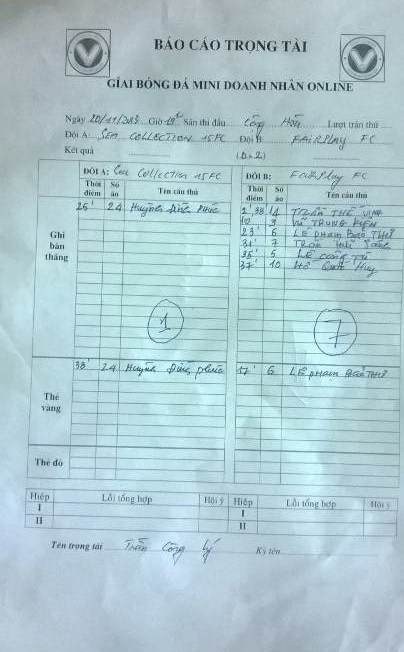 BÁO CÁO TRỌNG TÀI
GIẢI BÓNG ĐÁ MINI DOANH NHÂN ONLINE
Ngày 20/11/2013 Giờ 19h Sân thi đấu Cộng Hòa Lượt trận thứ
Đội A: SEA COLLECTION 15FC Đội B: FAIRPlay FC
Kết quả
ĐỘI A: Sea Collection 15FC ĐỘI B: FAIRPlay FC
Thời điểm Số áo Tên cầu thủ Thời điểm Số áo Tên cầu thủ
Ghi bàn thắng
26' 24 Huỳnh Đức Phúc 2' 38' 14 TRẦN THẾ VINH
10 9 VŨ TRUNG KIÊN
23' 6 LÊ PHẠM BẢO THƯ
31' 7
35' 5 LÊ CÔNG
37' 10 HỒ Quốc Huy
1 7
Thẻ vàng
38' 24 Huỳnh Đức phúc 17' 6 LÊ PHẠM BẢO THƯ
Thẻ đỏ
Hiệp Lỗi tổng hợp Hội ý Hiệp Lỗi tổng hợp Hội ý
I I
II II
Tên trọng tài Trần Công Lý Ký tên